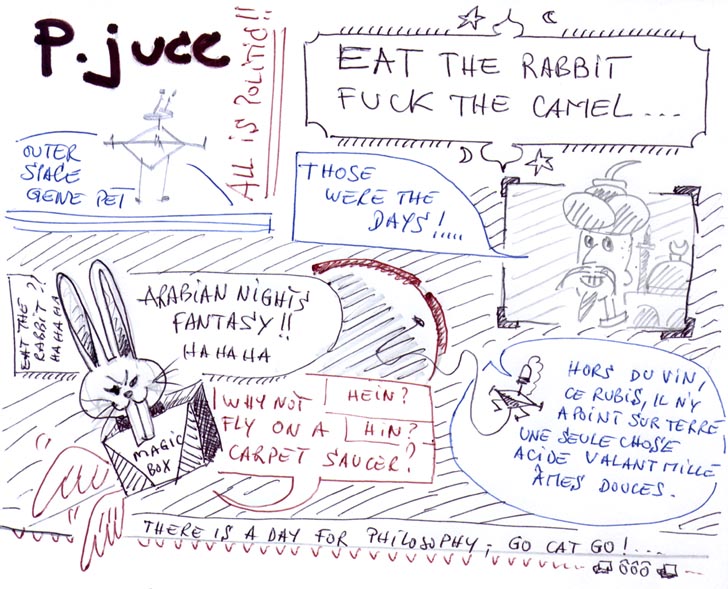 P.juce
ALL IS POLITIC!!
EAT THE RABBIT
FUCK THE CAMEL....
OUTER
SPACE
GENIE PET
THOSE
WERE THE
DAYS!.....
EAT THE
RABBIT?!
HAHAHA
ARABIAN NIGHTS
FANTASY!!
HAHAHA
WHY NOT
FLY ON A
CARPET SAUCER?
HEIN?
HIN?
MAGIC
BOX
HORS DU VIN,
CE RUBIS, IL N'Y
A POINT SUR TERRE
UNE SEULE CHOSE
ACIDE VALANT MILLE
ÂMES DOUCES.
THERE IS A DAY FOR PHILOSOPHY; GO CAT GO!....